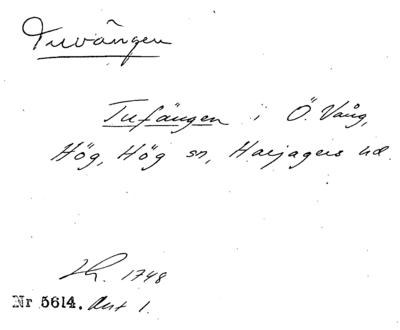 Tuvängen
Tufängen i Ö. Vång,
Hög, Hög sn, Harjagers hd.
Lh. 1748
Nr 5614. Akt 1.